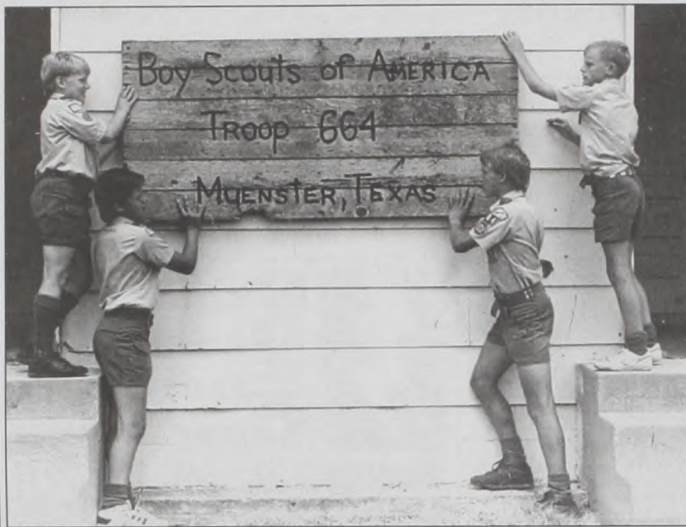 Boy Scouts of AMERICA
TROOP 664
MUENSTER, TEXAS